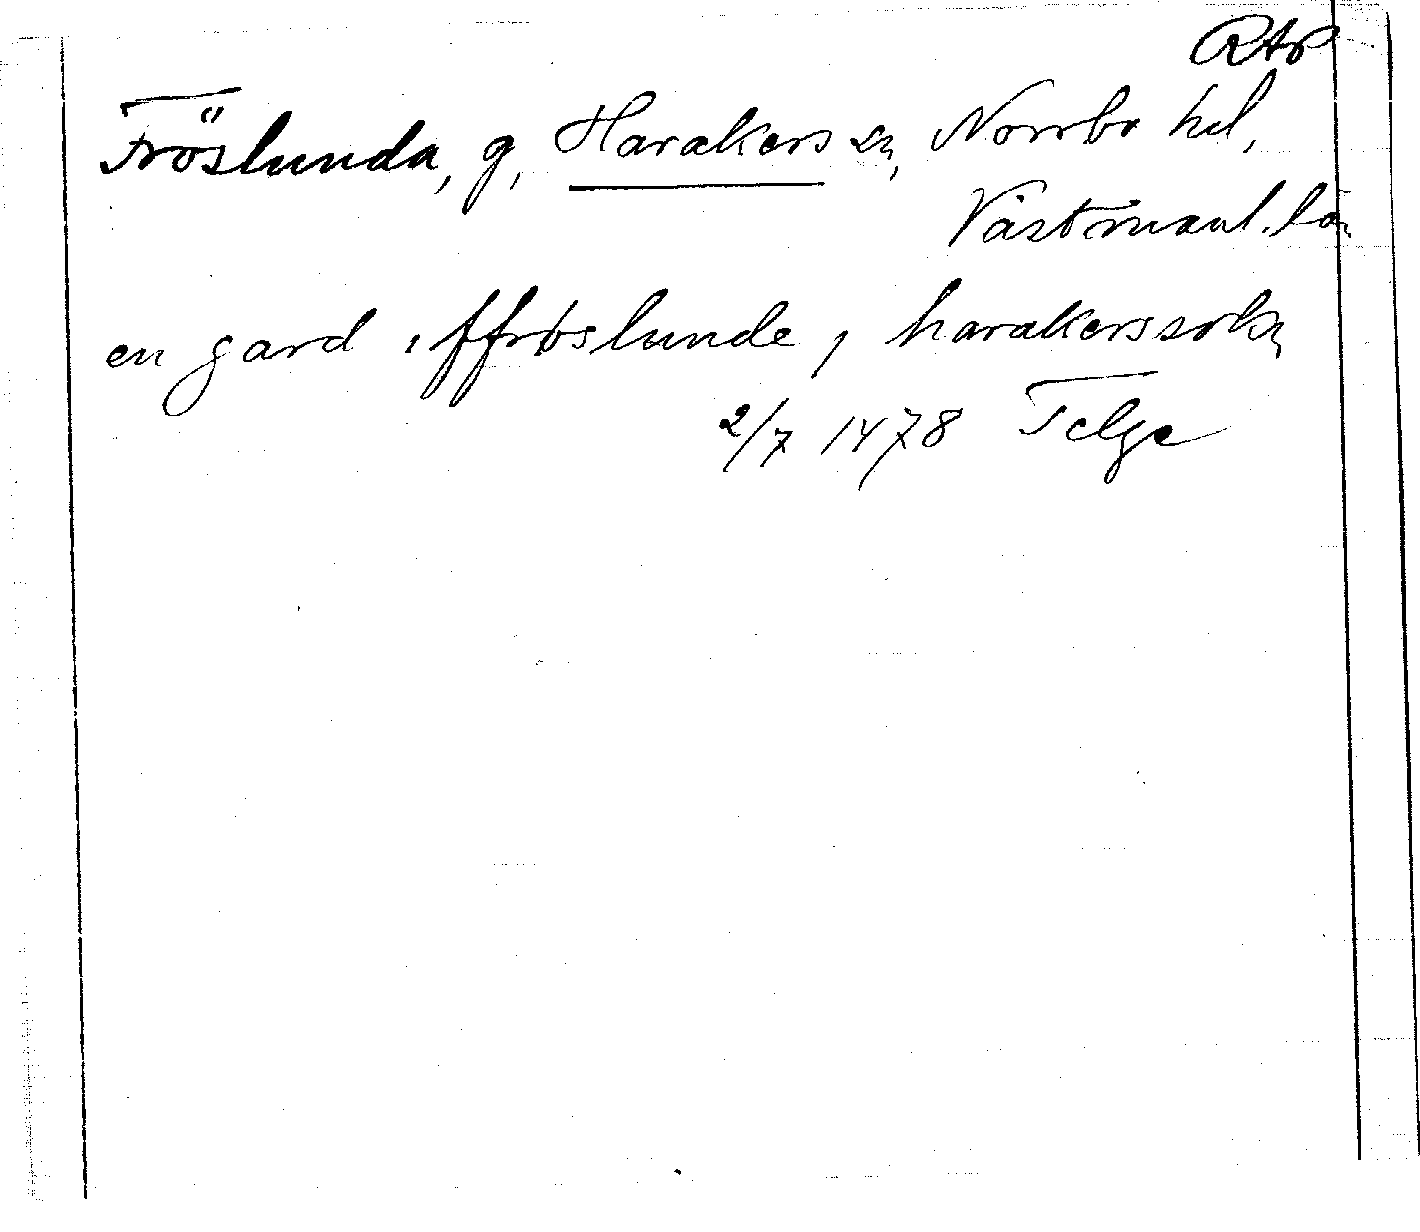 RAP
Fröslunda, g, Harakers sn, Norrbo hd,
Västmanl. län
en gard i ffröslunde, harakerssokn
2/7 1478 Telge